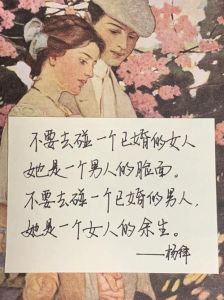 不要去碰一个已婚的女人
她是一个男人的脸面。
不要去碰一个已婚的男人,
她是一个女人的余生。
——杨锋